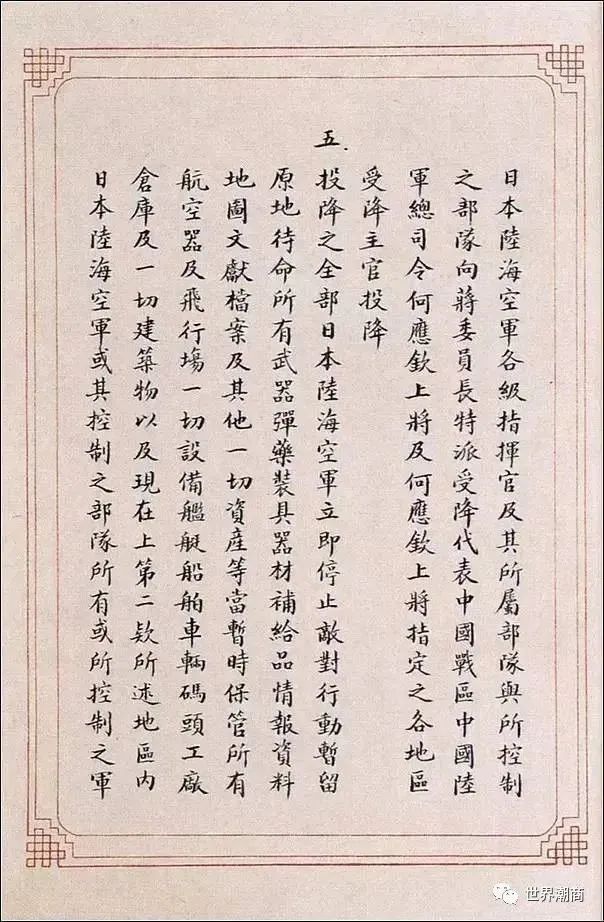 日本陸海空軍各級指揮官及其所屬部隊與所控制
之部隊向蔣委員長特派受降代表中國戰區中國陸
軍總司令何應欽上將及何應欽上將指定之各地區
受降主官投降
五.
投降之全部日本陸海空軍立即停止敵對行動暫留
原地待命所有武器彈藥裝具器材補給品情報資料
地圖文獻檔案及其他一切資產等當暫時保管所有
航空器及飛行場一切設備艦艇船舶車輛碼頭工廠
倉庫及一切建築物以及現在上第二欵所述地區內
日本陸海空軍或其控制之部隊所有或所控制之軍
世界潮商